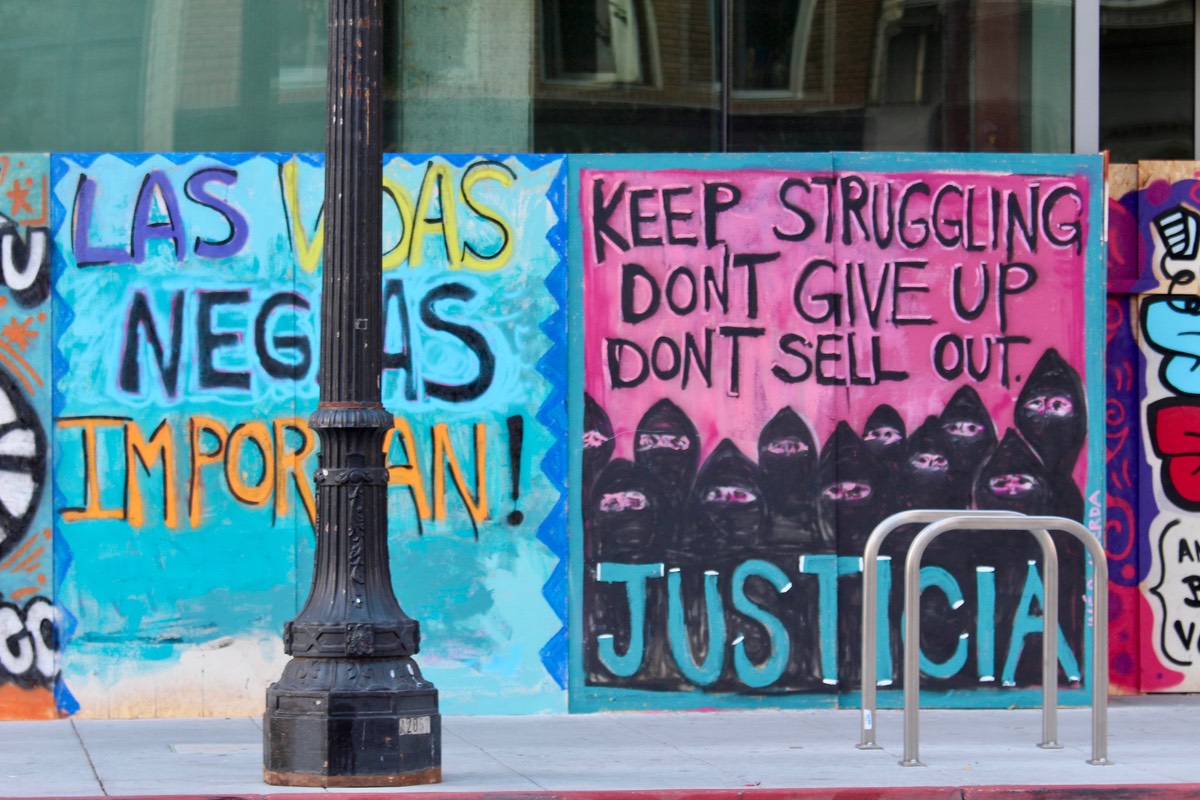 LAS VIDAS
NEGRAS
IMPORTAN!
KEEP STRUGGLING
DON'T GIVE UP
DON'T SELL OUT.
JUSTICIA